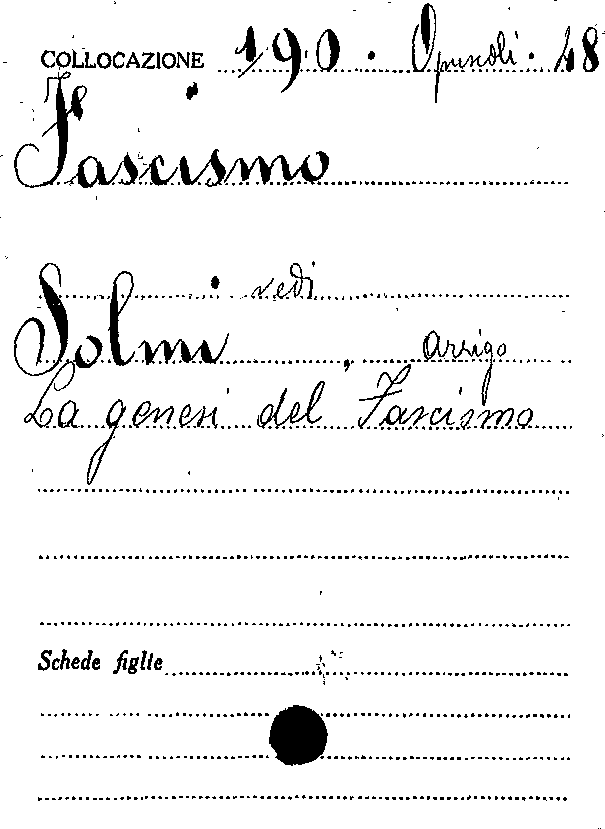 COLLOCAZIONE 190. Opuscoli. 48
Fascismo
vedi
Solmi, Arrigo
La genesi del Fascismo
Schede figlie